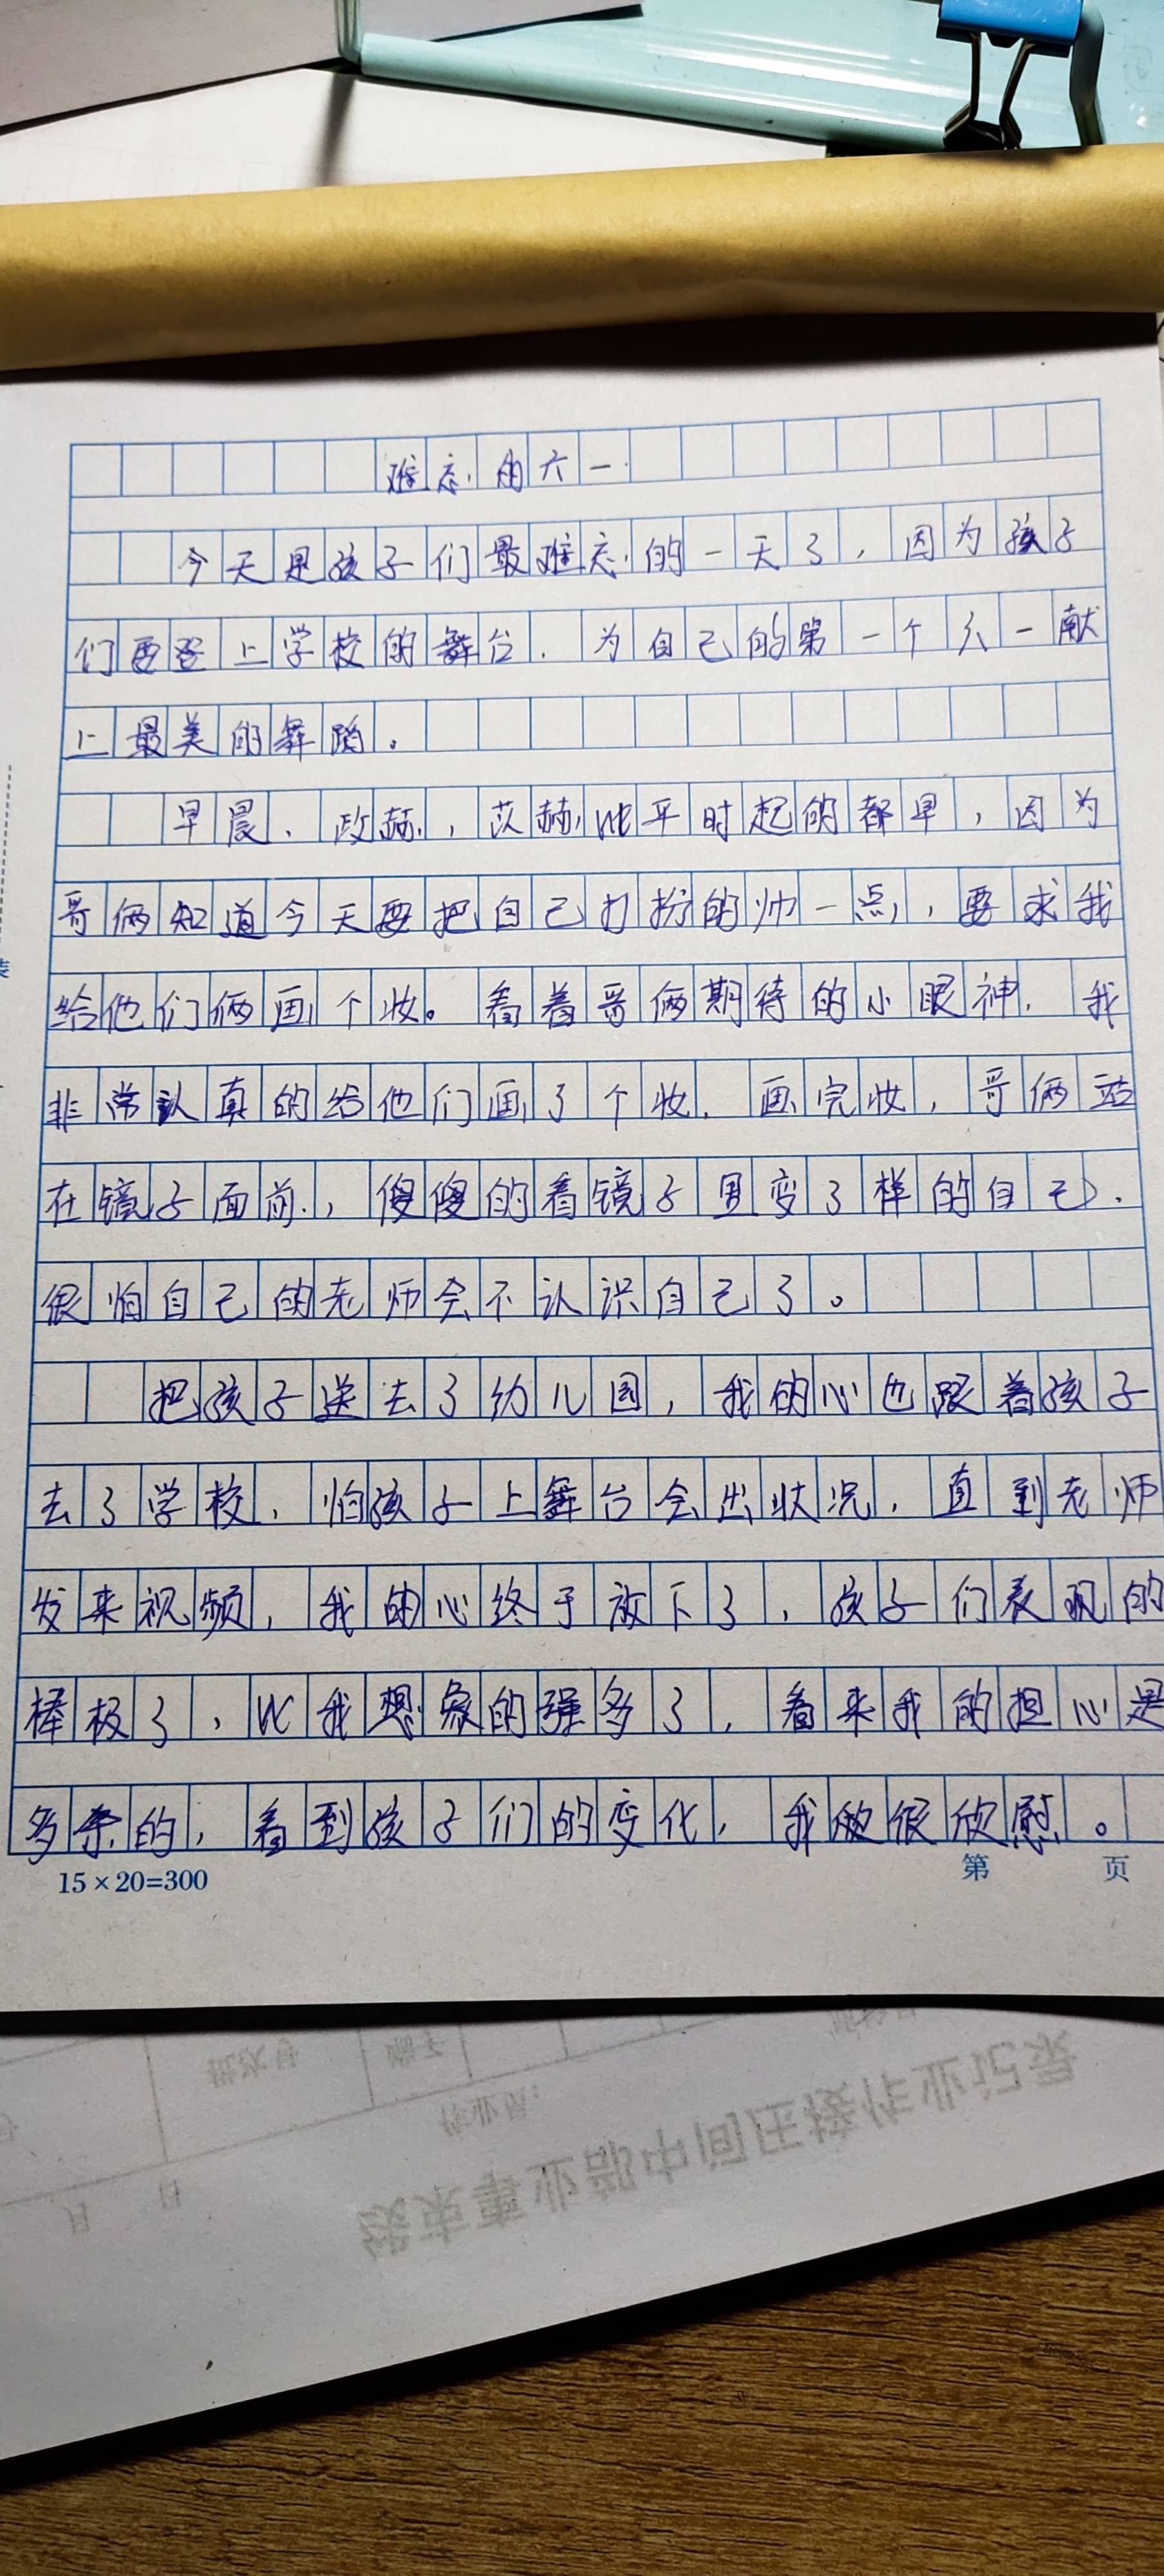 难忘的六一
今天是孩子们最难忘的一天了，因为孩子
们要登上学校的舞台，为自己的第一个六一献
上最美的舞蹈。
早晨，政赫，苡赫比平时起的都早，因为
哥俩知道今天要把自己打扮的帅一点，要求我
给他们俩画个妆。看着哥俩期待的小眼神，我
非常认真的给他们画了个妆，画完妆，哥俩站
在镜子面前，傻傻的看镜子里变了样的自己，
很怕自己的老师会不认识自己了。
把孩子送去了幼儿园，我的心也跟着孩子
去了学校，怕孩子上舞台会出状况，直到老师
发来视频，我的心终于放下了，孩子们表现的
棒极了，比我想象的强多了，看来我的担心是
多余的，看到孩子们的变化，我很欣慰。
15×20=300
第 页